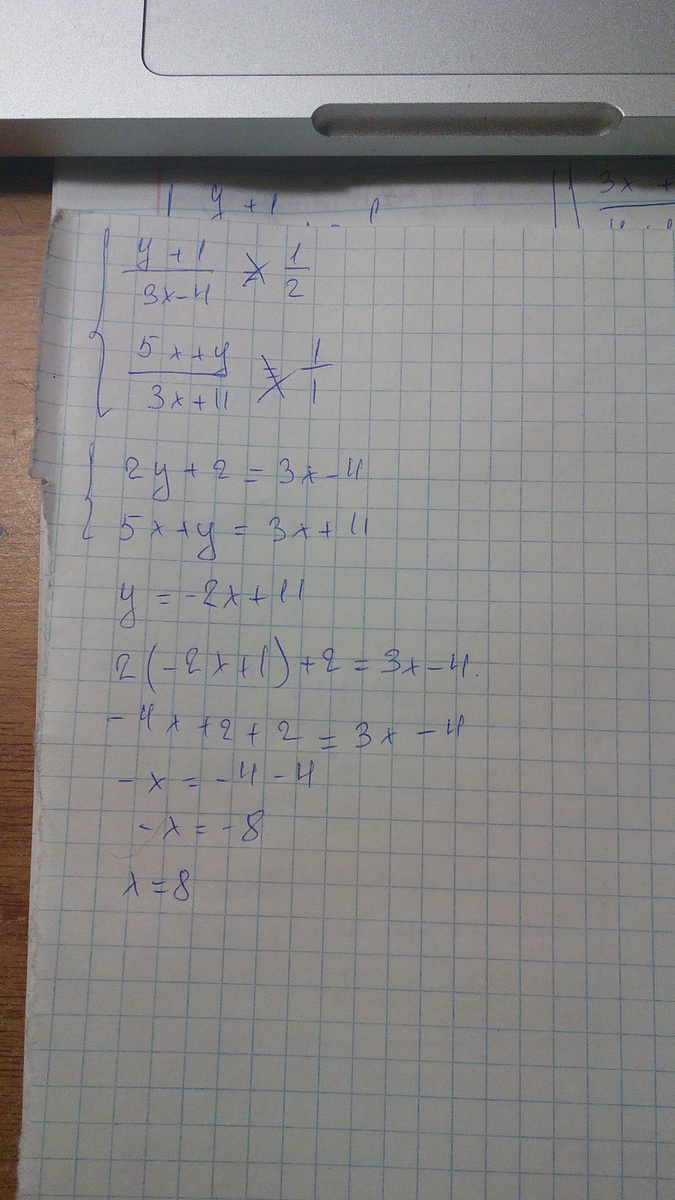 y + 1
3x +
y + 1 / 3x - 4 = 1 / 2
5x + y / 3x + 11 = 1 / 1
2y + 2 = 3x - 4
5x + y = 3x + 11
y = -2x + 11
2(-2x + 1) + 2 = 3x - 4.
-4x + 2 + 2 = 3x - 4
-x = -4 - 4
-x = -8
x = 8